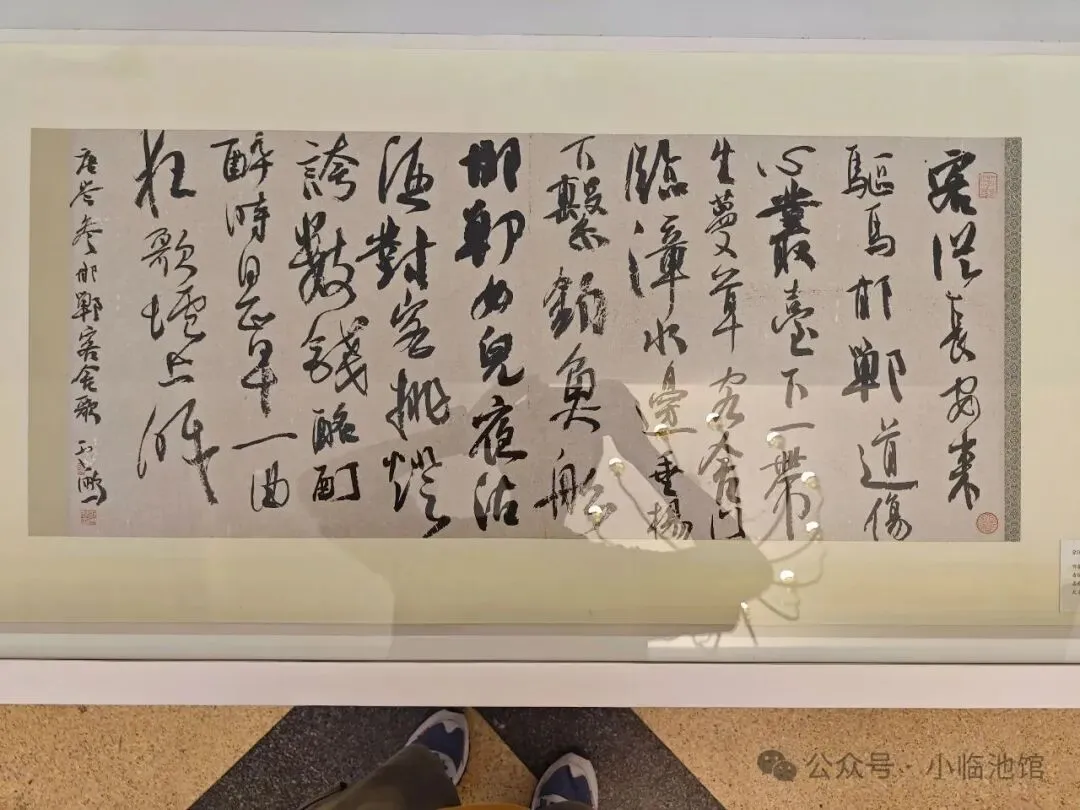 客從長安來
驅馬邯鄲道傷
心叢臺下一帶
生蔓草客舍門
臨漳水邊垂楊
下繫釣魚船
邯鄲女兒夜沽
酒對客挑燈
誇數錢酩酊
醉時日正午一曲
狂歌壚上眠
唐岑參邯鄲客舍歌
公众号 · 小临池馆